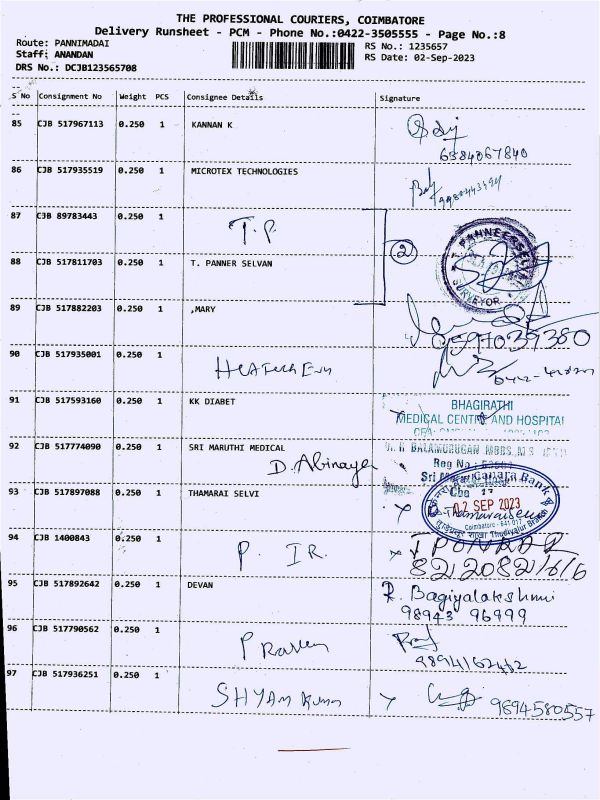 THE PROFESSIONAL COURIERS, COIMBATORE
Delivery Runsheet - PCM - Phone No.:0422-3505555 - Page No.:8
Route: PANNIMADAI
RS No.: 1235657
Staff: ANANDAN
RS Date: 02-Sep-2023
DRS No.: DCJB123565708
S No Consignment No Weight PCS Consignee Details Signature
85 CJB 517967113 0.250 1 KANNAN K
6384067840
86 CJB 517935519 0.250 1 MICROTEX TECHNOLOGIES
87 CJB 89783443 0.250 1 T.P.
2
PANNEERSELVAM
SURVEYOR
88 CJB 517811703 0.250 1 T. PANNER SELVAN
89 CJB 517882203 0.250 1 ,MARY
90 CJB 517935001 0.250 1
91 CJB 517593160 0.250 1 KK DIABET
BHAGIRATHI
MEDICAL CENTRE AND HOSPITAL
92 CJB 517774090 0.250 1 SRI MARUTHI MEDICAL
D. Abinaya
BALAMURUGAN MBBS., M.S
Reg No.
93 CJB 517897088 0.250 1 THAMARAI SELVI
Canara Bank
02 SEP 2023
Coimbatore - 641 017
Thudiyalur Branch
94 CJB 1400843 0.250 1 P. IR.
95 CJB 517892642 0.250 1 DEVAN
R. Bagiyalakshmi
98943 96999
96 CJB 517790562 0.250 1
9894162462
97 CJB 517936251 0.250 1 SHYAM Kumar
9894580557